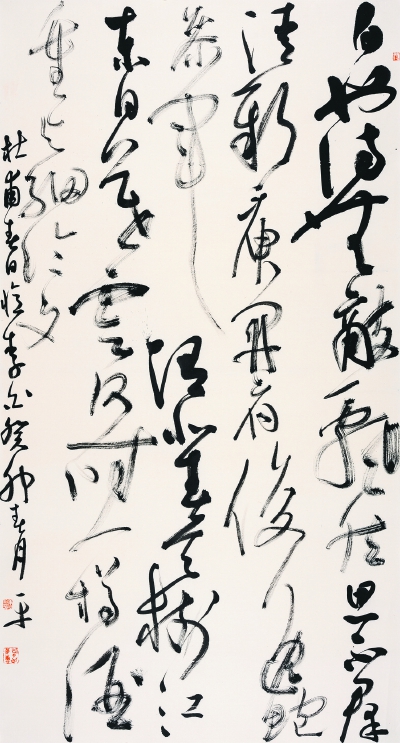 白也诗无敌飘然思不群
清新庾开府俊逸鲍
参军渭北春天树江
东日暮云何时一樽酒
重与细论文
杜甫春日忆李白癸卯春月一平